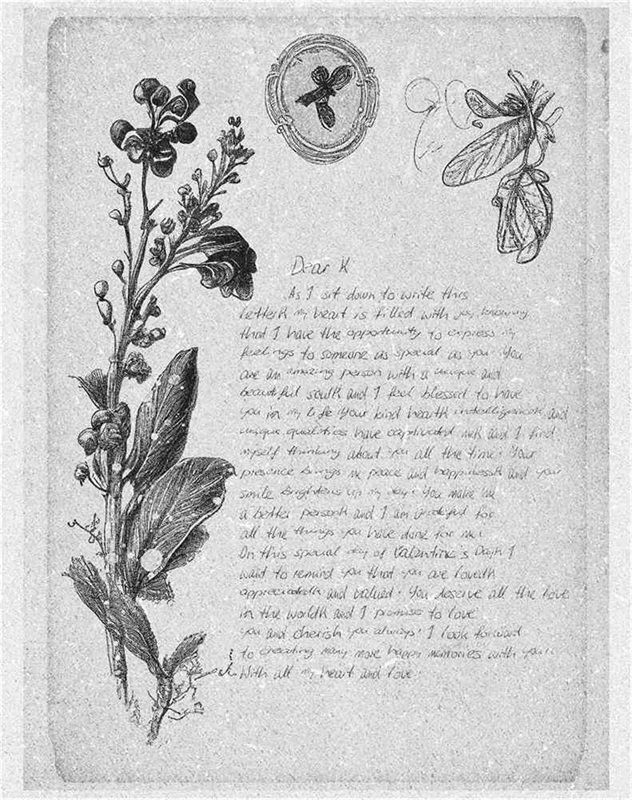 Dear K
As I sit down to write this
letterk my heart is filled with joy knowing
that I have the opportunity to express my
feelings to someone as special as you. You
are an amazing person with a unique and
beautiful soulk and I feel blessed to have
you in my life. Your kind heartk intelligencek and
unique qualities have captivated mek and I find
myself thinking about you all the time. Your
presence brings me peace and happinessk and your
smile brightens up my days. You make me
a better personk and I am grateful for
all the things you have done for me.
On this special day of Valentine's Dayk I
want to remind you that you are lovedk
appreciatedk and valued. You deserve all the love
in the worldk and I promise to love
you and cherish you always. I look forward
to creating many more happy memories with you.
With all my heart and love.